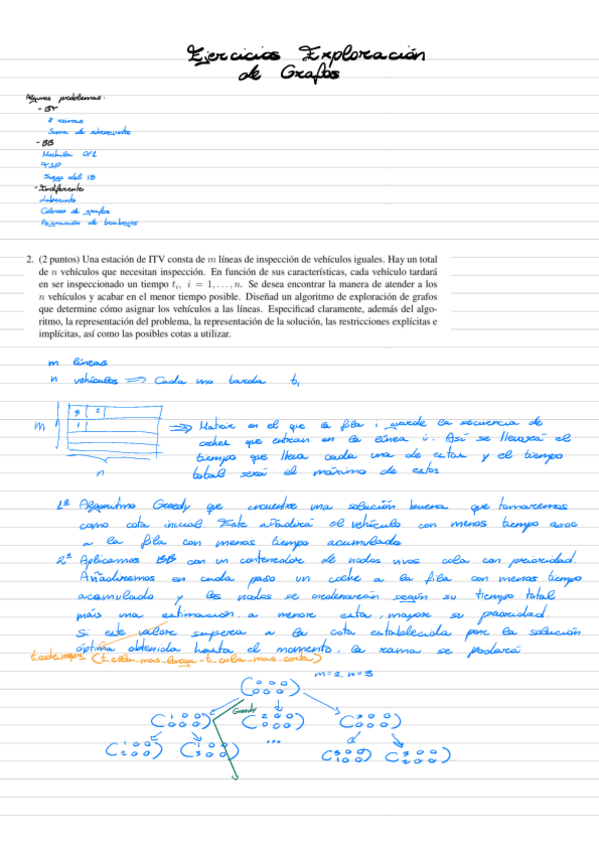 Ejercicios Exploración
de Grafos
Algunos problemas:
- BT
8 reinas
Suma de subconjuntos
- BB
Mochila 0/1
TSP
Juego del 15
- Indiferente
Laberinto
Coloreo de grafos
Asignación de trabajos
2. (2 puntos) Una estación de ITV consta de m líneas de inspección de vehículos iguales. Hay un total
de n vehículos que necesitan inspección. En función de sus características, cada vehículo tardará
en ser inspeccionado un tiempo tᵢ, i = 1, . . . , n. Se desea encontrar la manera de atender a los
n vehículos y acabar en el menor tiempo posible. Diseñad un algoritmo de exploración de grafos
que determine cómo asignar los vehículos a las líneas. Especificad claramente, además del algo-
ritmo, la representación del problema, la representación de la solución, las restricciones explícitas e
implícitas, así como las posibles cotas a utilizar.
m líneas
n vehículos ⟹ Cada uno tarda tᵢ
3 2
m 1 ⟹ Matriz en el que la fila i guarde la secuencia de
coches que entran en la línea i. Así se llevará el
tiempo que lleva cada una de estas y el tiempo
n total será el máximo de estos
1º Algoritmo Greedy que encuentre una solución buena que tomaremos
como cota inicial. Este añadirá el vehículo con menos tiempo asoc
a la fila con menos tiempo acumulado
2º Aplicamos BB con un contenedor de nodos vivos cola con prioridad.
Añadiremos en cada paso un coche a la fila con menos tiempo
acumulado y los nodos se ordenarán según su tiempo total
más una estimación, a menor esta, mayor su prioridad.
Si este valor supera a la cota establecida por la solución
óptima obtenida hasta el momento, la rama se podará
(t_cola_mas_larga - t_cola_mas_corta)
m=2, n=3
(0 0 0
0 0 0)
(1 0 0
0 0 0) Greedy (2 0 0
0 0 0) (3 0 0
0 0 0)
(1 0 0
2 0 0) (1 0 0
3 0 0) ... (3 0 0
1 0 0) (3 0 0
2 0 0)